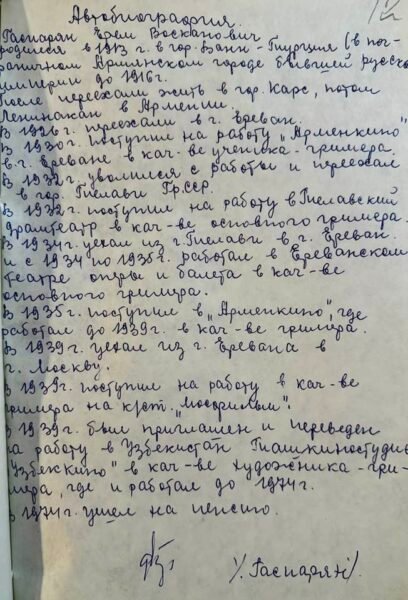 Автобиография.
Гаспарян Ерем Восканович
родился в 1913 г в гор. Ване - Турция (в пог-
раничном Армянском городе бывшей русской
империи до 1916г.
После переехали жить в гор. Карс, потом
Ленинакан в Армении.
В 1926г. переехали в г. Ереван.
В 1930г. поступил на работу „Арменкино"
в г. Ереване в кач-ве ученика-гримера.
В 1932г. уволился с работы и переехал
в гор. Телави Гр.ССР.
В 1932г. поступил на работу в Телавский
драмтеатр в кач-ве основного гримера.
В 1934г. уехал из г. Телави в г. Ереван.
и с 1934 по 1935г. работал в Ереванском
театре оперы и балета в кач-ве
основного гримера.
В 1935г. поступил в „Арменкино", где
работал до 1939г. в кач-ве гримера.
В 1939г. уехал из г. Еревана в
г. Москву.
В 1939г. поступил на работу в кач-ве
гримера на к/ст. „Мосфильм".
В 1939г. был приглашен и переведен
на работу в Узбекистан Ташкиностудию
„Узбенкино" в кач-ве художника-гри-
мера, где и работал до 1974г.
В 1974г. ушел на пенсию.
/Гаспарян/.